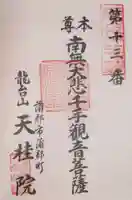 第十三番
本尊
南無大悲千手觀音菩薩
蒲郡市蒲郡町
龍台山
天桂院